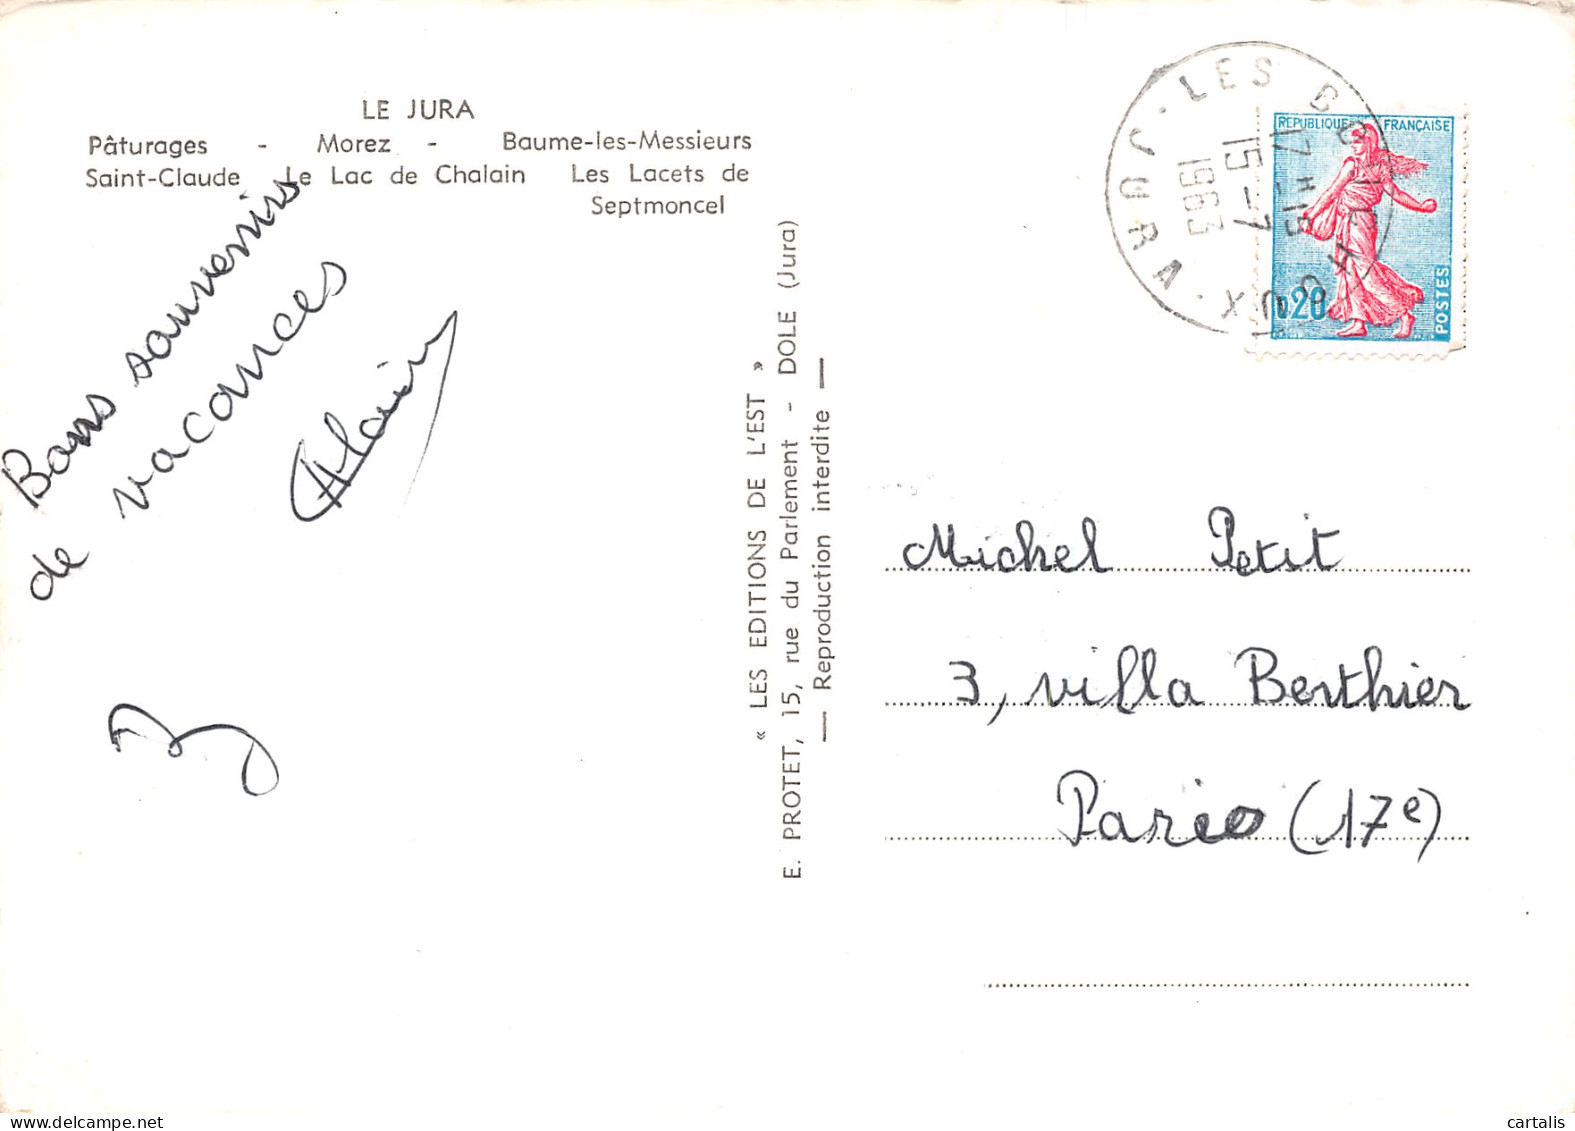 LE JURA
Pâturages - Morez - Baume-les-Messieurs
Saint-Claude Le Lac de Chalain Les Lacets de
Septmoncel
Bons souvenirs
de vacances
Alain
« LES EDITIONS DE L'EST »
E. PROTET, 15, rue du Parlement - DOLE (Jura)
— Reproduction interdite —
LES BOUCHOUX · JURA ·
17 H -19
15 -7
1963
REPUBLIQUE FRANÇAISE
0,20
POSTES
Michel Petit
3, villa Berthier
Paris (17e)
cartalis
delcampe.net